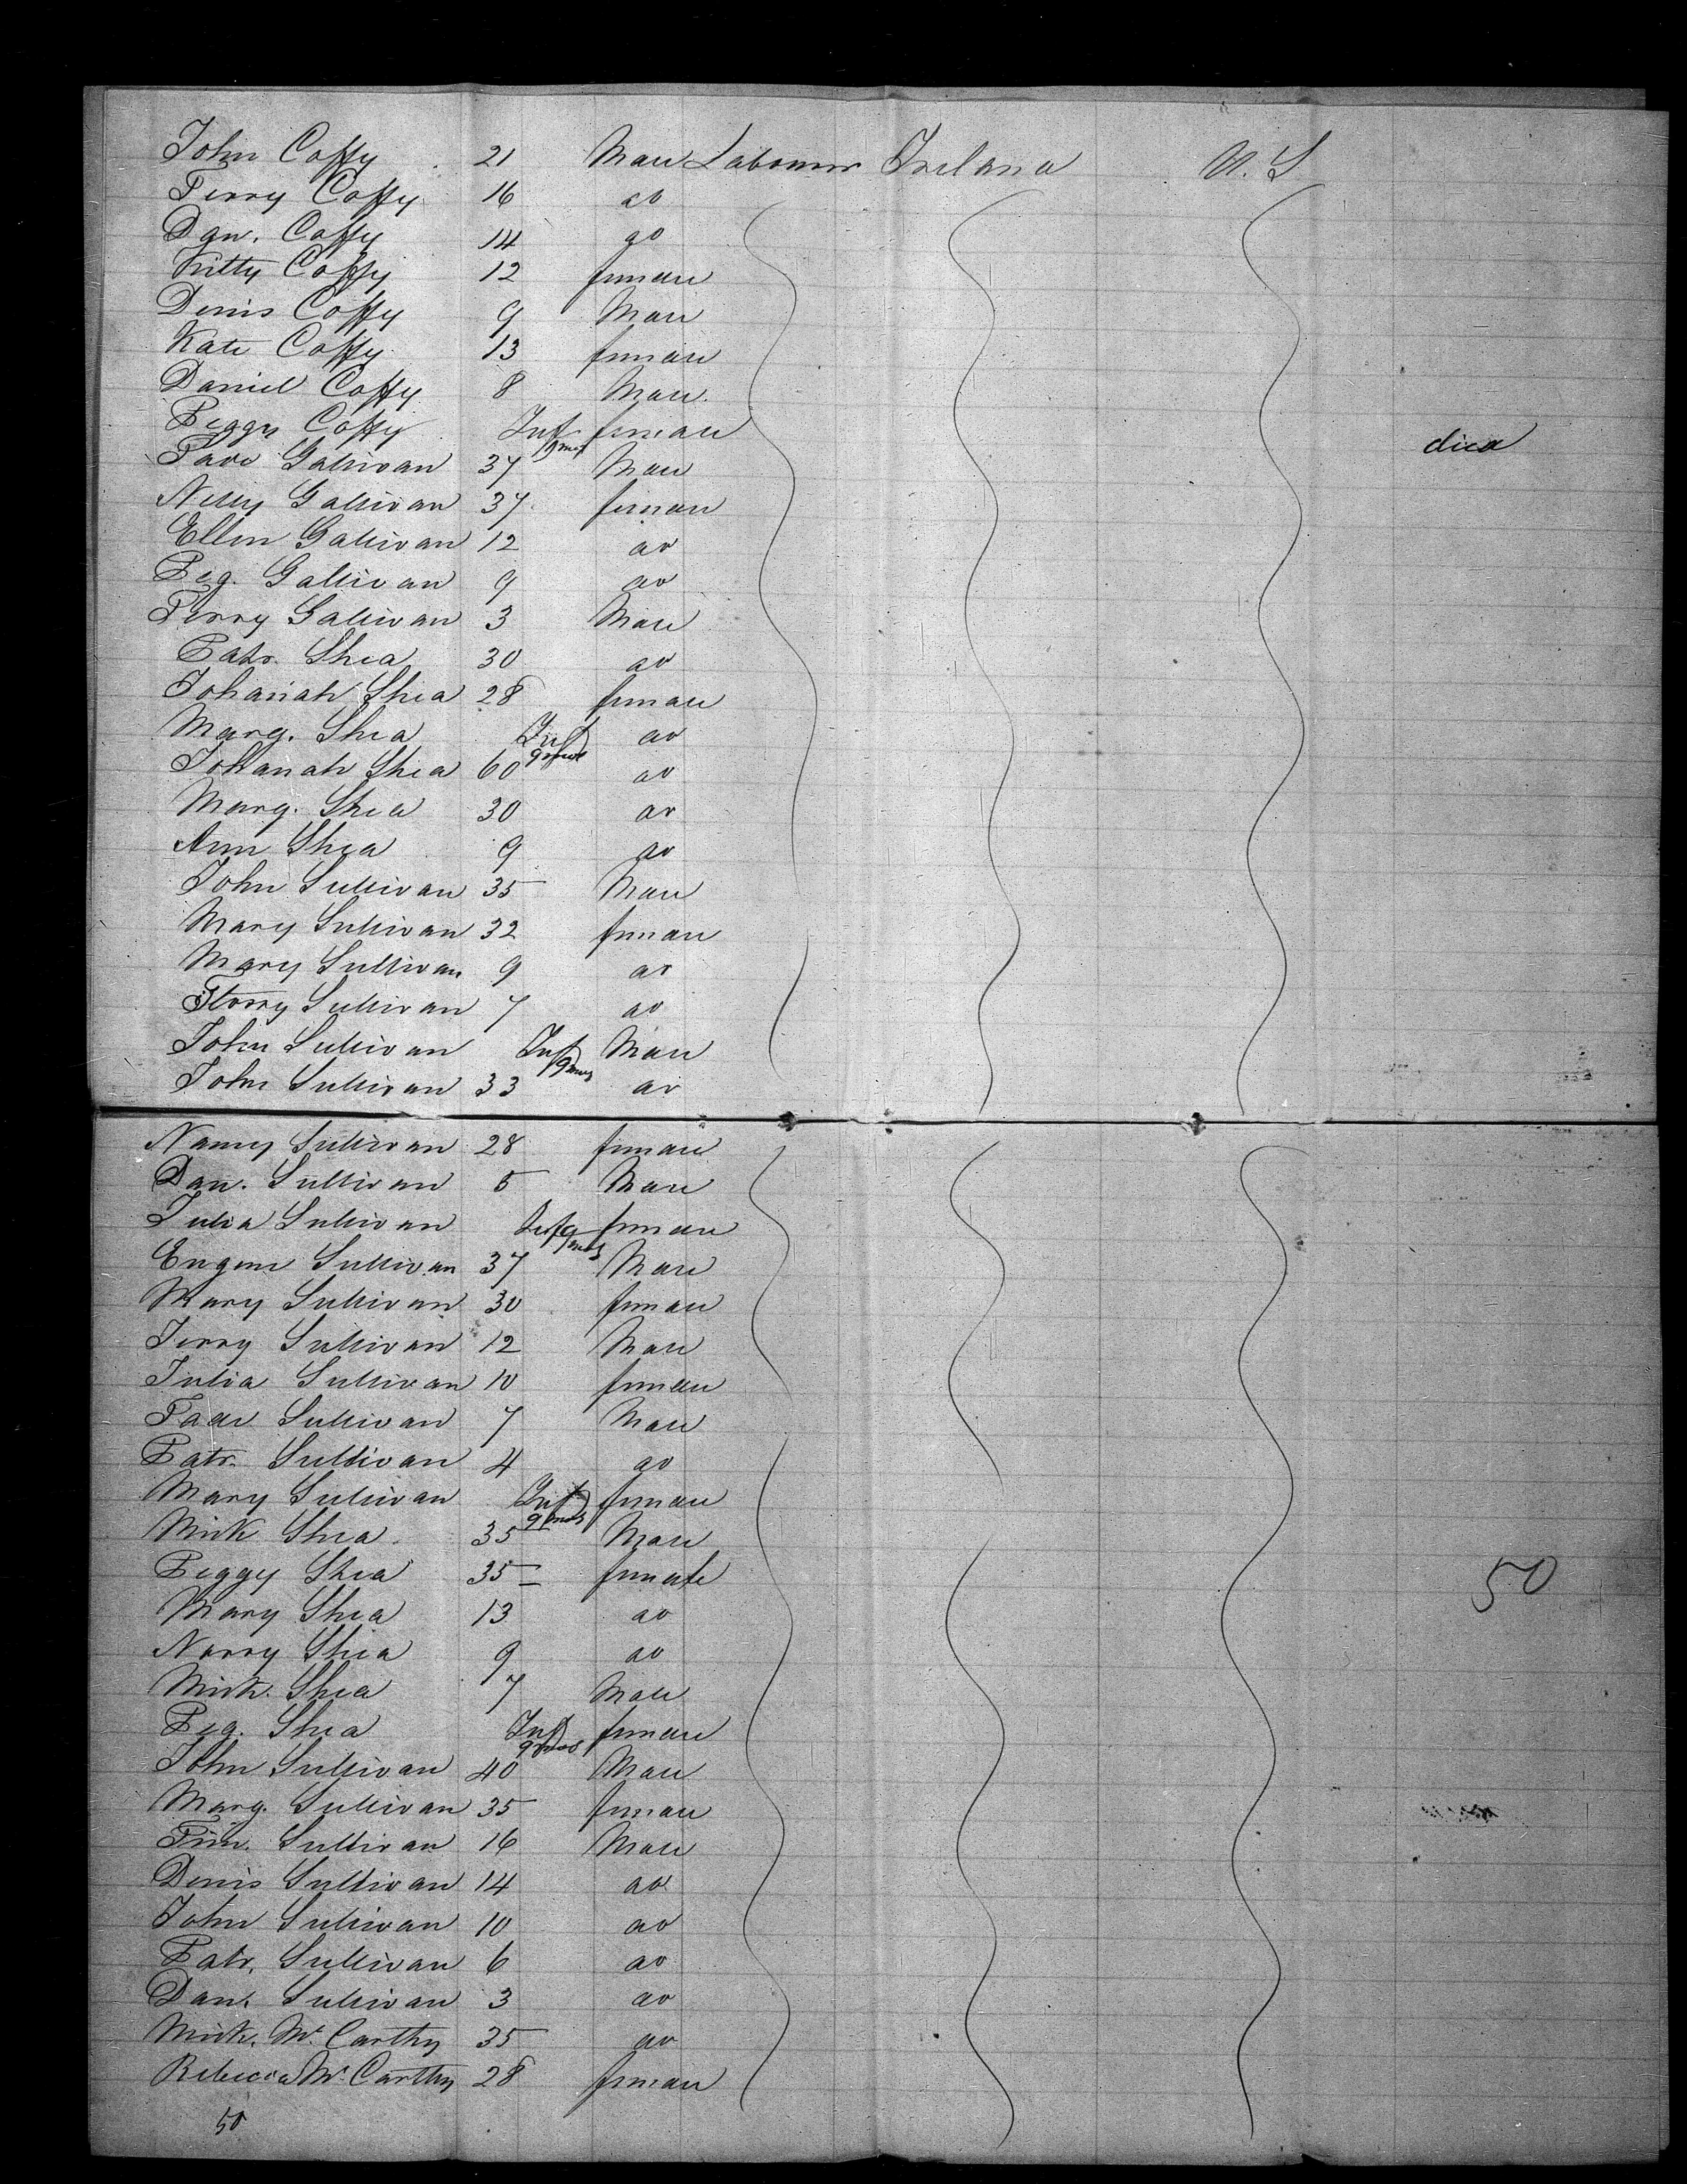 John Coffy 21 Male Labourer Ireland U.S
Terry Coffy 16 do
Dan. Coffy 14 do
Kitty Coffy 12 female
Denis Coffy 9 Male
Kate Coffy 13 female
Daniel Coffy 8 Male
Peggy Coffy Inf 9 mos female died
Gallivan 37 Male
Nelly Gallivan 37 female
Ellen Gallivan 12 do
Peg. Gallivan 9 do
Terry Gallivan 3 Male
Patr. Shea 30 do
Johanah Shea 28 female
Marg. Shea Inf 9 mos do
Johanah Shea 60 do
Marg. Shea 30 do
Ann Shea 9 do
John Sullivan 35 Male
Mary Sullivan 32 female
Mary Sullivan 9 do
Florry Sullivan 7 do
John Sullivan Inf 9 mos Male
John Sullivan 33 do
Nancy Sullivan 28 female
Dan. Sullivan 5 Male
Julia Sullivan Inf 9 mos female
Eugene Sullivan 37 Male
Mary Sullivan 30 female
Jerry Sullivan 12 Male
Julia Sullivan 10 female
Sullivan 7 Male
Patr. Sullivan 4 do
Mary Sullivan Inf 9 mos female
Mick Shea 35 Male
Peggy Shea 35 female 50
Mary Shea 13 do
Norry Shea 9 do
Mick. Shea 7 Male
Peg. Shea Inf 9 mos female
John Sullivan 40 Male
Marg. Sullivan 35 female
Tim. Sullivan 16 Male
Denis Sullivan 14 do
John Sullivan 10 do
Patr. Sullivan 6 do
Dan. Sullivan 3 do
Mick. Mc Carthy 35 do
Rebecca Mc Carthy 28 female
50